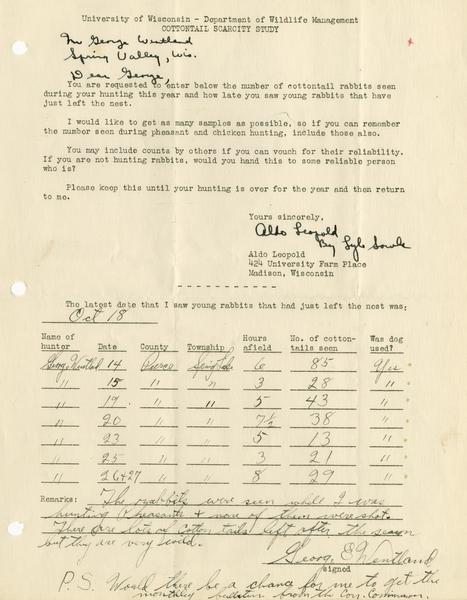 University of Wisconsin - Department of Wildlife Management
COTTONTAIL SCARCITY STUDY
Mr George Wentland
Spring Valley, Wis.
Dear George,
You are requested to enter below the number of cottontail rabbits seen
during your hunting this year and how late you saw young rabbits that have
just left the nest.
I would like to get as many samples as possible, so if you can remember
the number seen during pheasant and chicken hunting, include those also.
You may include counts by others if you can vouch for their reliability.
If you are not hunting rabbits, would you hand this to some reliable person
who is?
Please keep this until your hunting is over for the year and then return
to me.
Yours sincerely,
Aldo Leopold
By Lyle Sowls
Aldo Leopold
424 University Farm Place
Madison, Wisconsin
The latest date that I saw young rabbits that had just left the nest was:
Oct 18
Name of hunter Date County Township Hours afield No. of cotton-tails seen Was dog used?
George Wentland 14 Pierce 6 85 yes
" 15 " " 3 28 "
" 19 " " 5 43 "
" 20 " " 7½ 38 "
" 23 " " 5 13 "
" 25 " " 3 21 "
" 26+27 " " 8 29 "
Remarks: The rabbits were seen while I was
hunting pheasants + none of them were shot.
There are lots of cotton tails left after the season
but they are very wild.
George E Wentland
signed
P.S. Would there be a chance for me to get the
monthly bulletin from the Con. Commission.